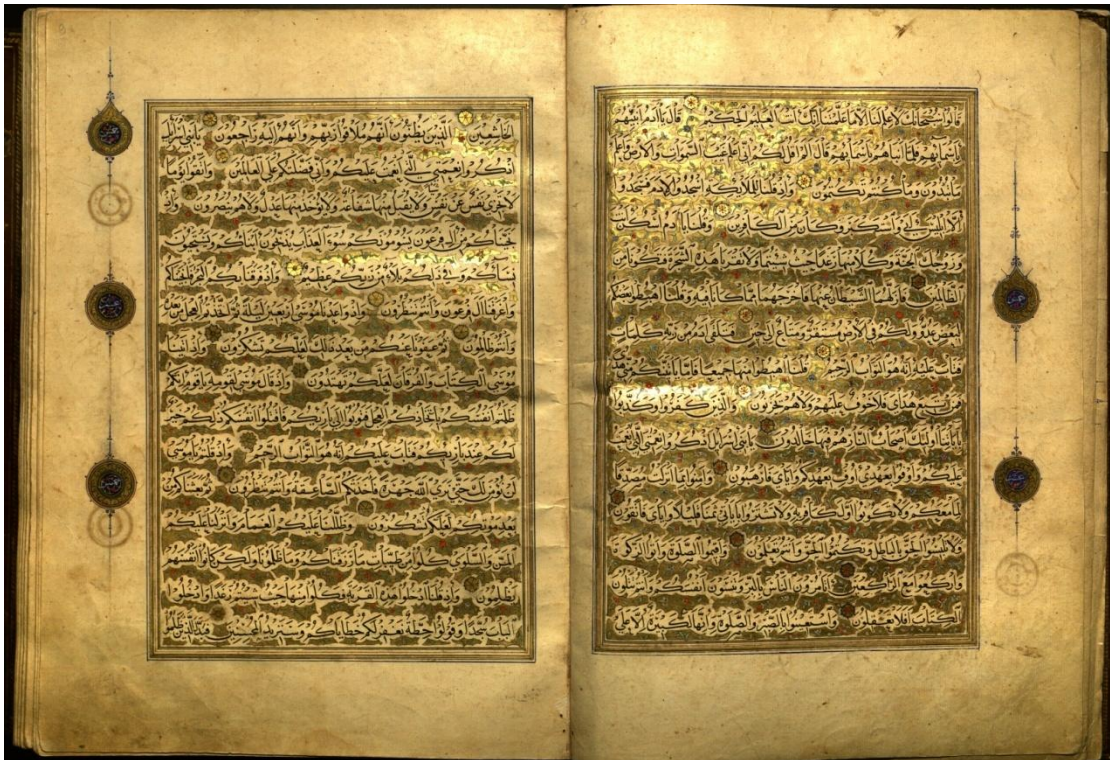 قالوا سبحانك لا علم لنا الا ما علمتنا انك انت العليم الحكيم قال يا آدم انبئهم
باسمائهم فلما انباهم باسمائهم قال الم اقل لكم اني اعلم غيب السموات والارض واعلم
ما تبدون وما كنتم تكتمون واذ قلنا للملائكة اسجدوا لآدم فسجدوا
الا ابليس ابى واستكبر وكان من الكافرين وقلنا يا آدم اسكن انت
وزوجك الجنة وكلا منها رغدا حيث شئتما ولا تقربا هذه الشجرة فتكونا من
الظالمين فازلهما الشيطان عنها فاخرجهما مما كانا فيه وقلنا اهبطوا بعضكم
لبعض عدو ولكم في الارض مستقر ومتاع الى حين فتلقى آدم من ربه كلمات
فتاب عليه انه هو التواب الرحيم قلنا اهبطوا منها جميعا فاما ياتينكم مني هدى
فمن تبع هداي فلا خوف عليهم ولا هم يحزنون والذين كفروا وكذبوا
بآياتنا اولئك اصحاب النار هم فيها خالدون يا بني اسرائيل اذكروا نعمتي التي انعمت
عليكم واوفوا بعهدي اوف بعهدكم واياي فارهبون وآمنوا بما انزلت مصدقا
لما معكم ولا تكونوا اول كافر به ولا تشتروا بآياتي ثمنا قليلا واياي فاتقون
ولا تلبسوا الحق بالباطل وتكتموا الحق وانتم تعلمون واقيموا الصلوة وآتوا الزكوة
واركعوا مع الراكعين اتامرون الناس بالبر وتنسون انفسكم وانتم تتلون
الكتاب افلا تعقلون واستعينوا بالصبر والصلوة وانها لكبيرة الا على
الخاشعين الذين يظنون انهم ملاقوا ربهم وانهم اليه راجعون يا بني اسرائيل
اذكروا نعمتي التي انعمت عليكم واني فضلتكم على العالمين واتقوا يوما
لا تجزي نفس عن نفس شيئا ولا يقبل منها شفاعة ولا يؤخذ منها عدل ولا هم ينصرون واذ
نجيناكم من آل فرعون يسومونكم سوء العذاب يذبحون ابناءكم ويستحيون
نساءكم وفي ذلكم بلاء من ربكم عظيم واذ فرقنا بكم البحر فانجيناكم
واغرقنا آل فرعون وانتم تنظرون واذ واعدنا موسى اربعين ليلة ثم اتخذتم العجل من بعده
وانتم ظالمون ثم عفونا عنكم من بعد ذلك لعلكم تشكرون واذ آتينا
موسى الكتاب والفرقان لعلكم تهتدون واذ قال موسى لقومه يا قوم انكم
ظلمتم انفسكم باتخاذكم العجل فتوبوا الى بارئكم فاقتلوا انفسكم ذلكم خير
لكم عند بارئكم فتاب عليكم انه هو التواب الرحيم واذ قلتم يا موسى
لن نؤمن لك حتى نرى الله جهرة فاخذتكم الصاعقة وانتم تنظرون ثم بعثناكم من
بعد موتكم لعلكم تشكرون وظللنا عليكم الغمام وانزلنا عليكم
المن والسلوى كلوا من طيبات ما رزقناكم وما ظلمونا ولكن كانوا انفسهم
يظلمون واذ قلنا ادخلوا هذه القرية فكلوا منها حيث شئتم رغدا وادخلوا
الباب سجدا وقولوا حطة نغفر لكم خطاياكم وسنزيد المحسنين فبدل الذين ظلموا